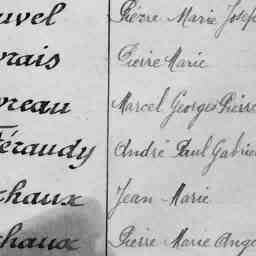 uvel Pierre Marie Josep
vrais Pierre Marie
vreau Marcel Georges Pierre
Féraudy André Paul Gabrie
chaux Jean Marie
chaux Pierre Marie Ange